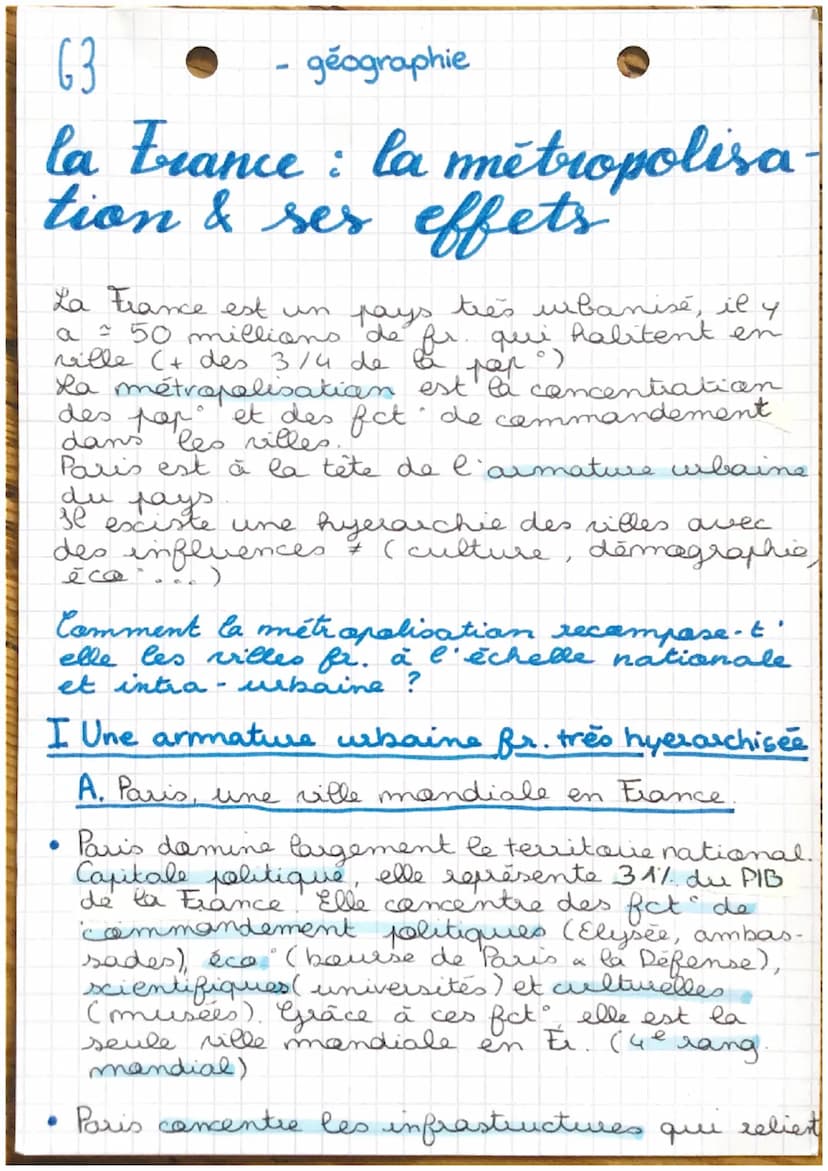 G3 - géographie
la France : la métropolisa-
tion & ses effets
La France est un pays très urbanisé, il y
a ≃ 50 millions de fr. qui habitent en
ville (+ des 3/4 de la pop°)
La métropolisation est la concentration
des pop° et des fct° de commandement
dans les villes.
Paris est à la tête de l'armature urbaine
du pays.
Il existe une hyerarchie des villes avec
des influences ≠ (culture, démographie,
éco°...)
Comment la métropolisation recompose-t'
elle les villes fr. à l'échelle nationale
et intra-urbaine ?
I Une armature urbaine fr. très hyerarchisée
A. Paris, une ville mondiale en France.
• Paris domine largement le territoire national.
Capitale politique, elle représente 31% du PIB
de la France. Elle concentre des fct° de
commandement politiques (Elysée, ambas-
sades), éco° (bourse de Paris à la Défense),
scientifiques (universités) et culturelles
(musées). Grâce à ces fct°, elle est la
seule ville mondiale en Fr. (4e rang
mondial)
• Paris concentre les infrastructures qui relient